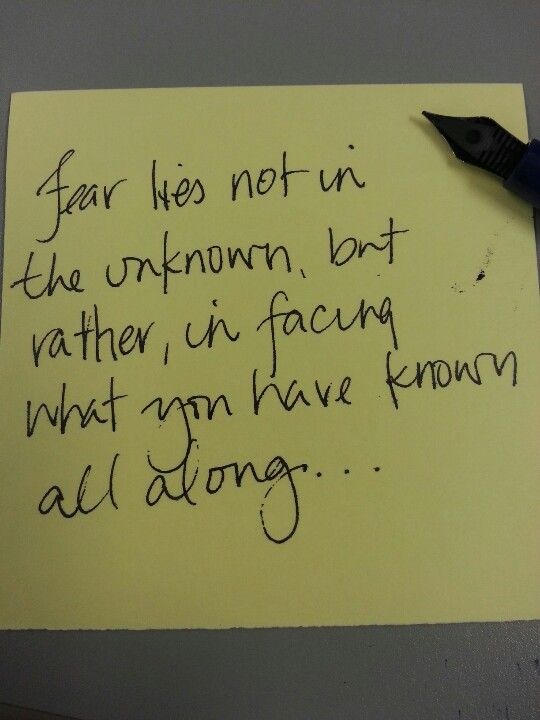 fear lies not in
the unknown, but
rather, in facing
what you have known
all along...